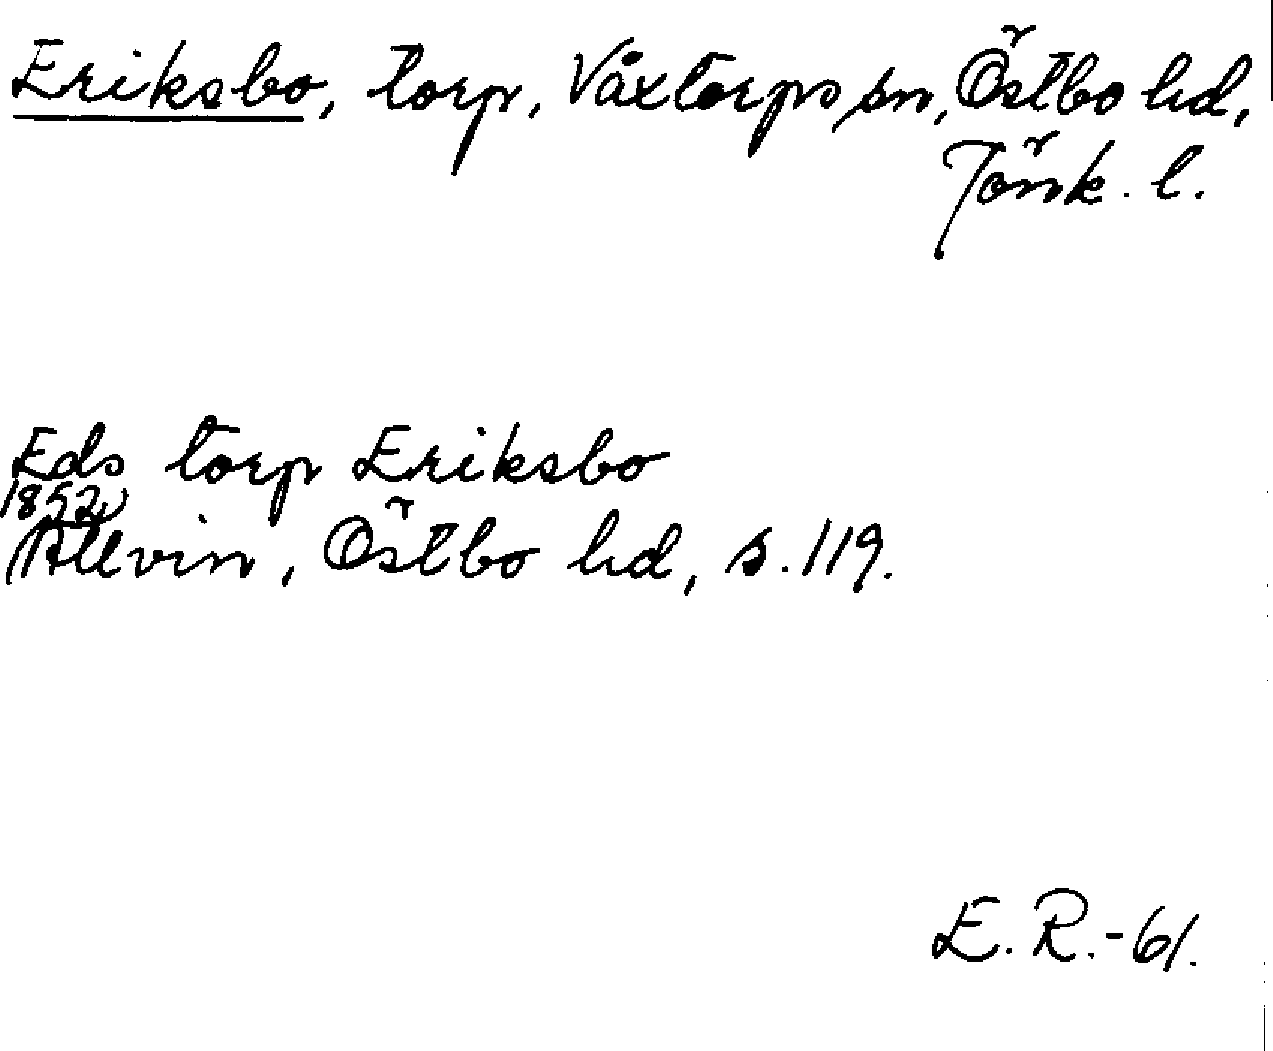 Eriksbo, torp, Växtorps sn, Östbo hd,
Jönk. l.
Eds torp Eriksbo
1852
Allvin, Östbo hd, s. 119.
E. R. -61.